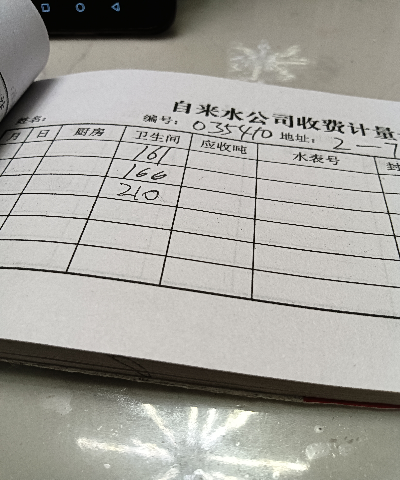 自来水公司收费计量
姓名: 编号: 035410 地址: 2-7
月 日 厨房 卫生间 应收吨 水表号 封
161
166
210